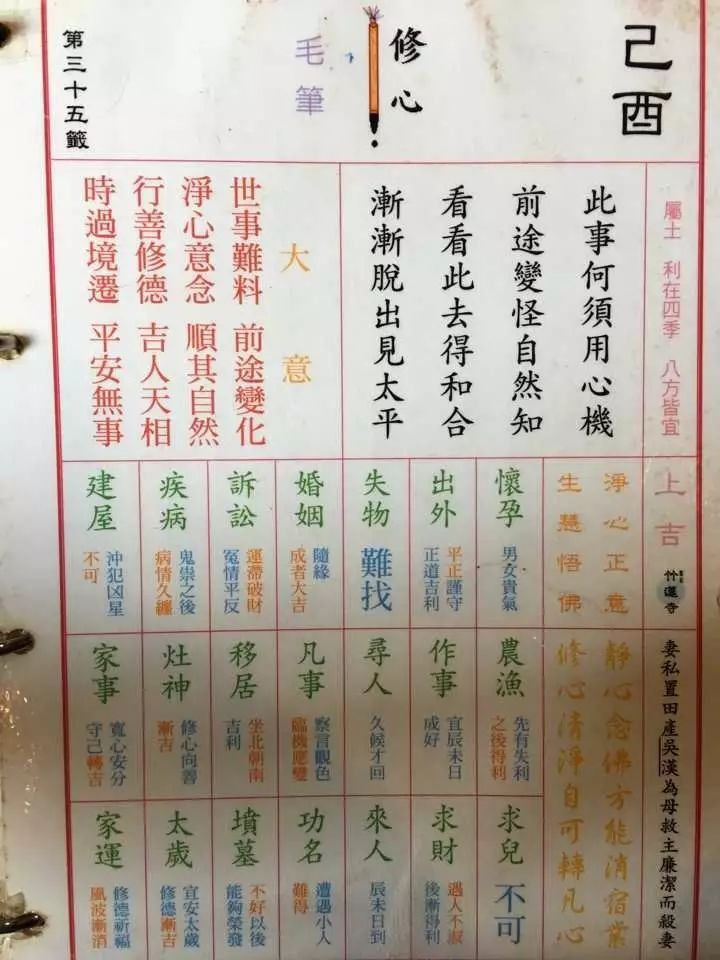 己酉
修心
毛筆
第三十五籤
屬土 利在四季 八方皆宜
此事何須用心機
前途變怪自然知
看看此去得和合
漸漸脫出見太平
大意
世事難料 前途變化
淨心意念 順其自然
行善修德 吉人天相
時過境遷 平安無事
上吉
竹蓮寺
妻私置田產吳漢為母救主廉潔而殺妻
淨心正意
生慧悟佛
靜心念佛方能消宿業
修心清淨自可轉凡心
懷孕
男女貴氣
出外
平正謹守
正道吉利
失物
難找
婚姻
隨緣
成者大吉
訴訟
運滯破財
冤情平反
疾病
鬼祟之後
病情久纏
建屋
沖犯凶星
不可
農漁
先有失利
之後得利
作事
宜辰未日
成好
尋人
久候才回
凡事
察言觀色
臨機應變
移居
坐北朝南
吉利
灶神
修心向善
漸吉
家事
寬心安分
守己轉吉
求兒
不可
求財
遇人不淑
後漸得利
來人
辰未日到
功名
遭遇小人
難得
墳墓
不好以後
能夠榮發
太歲
宜安太歲
修德漸吉
家運
修德祈福
風波漸消